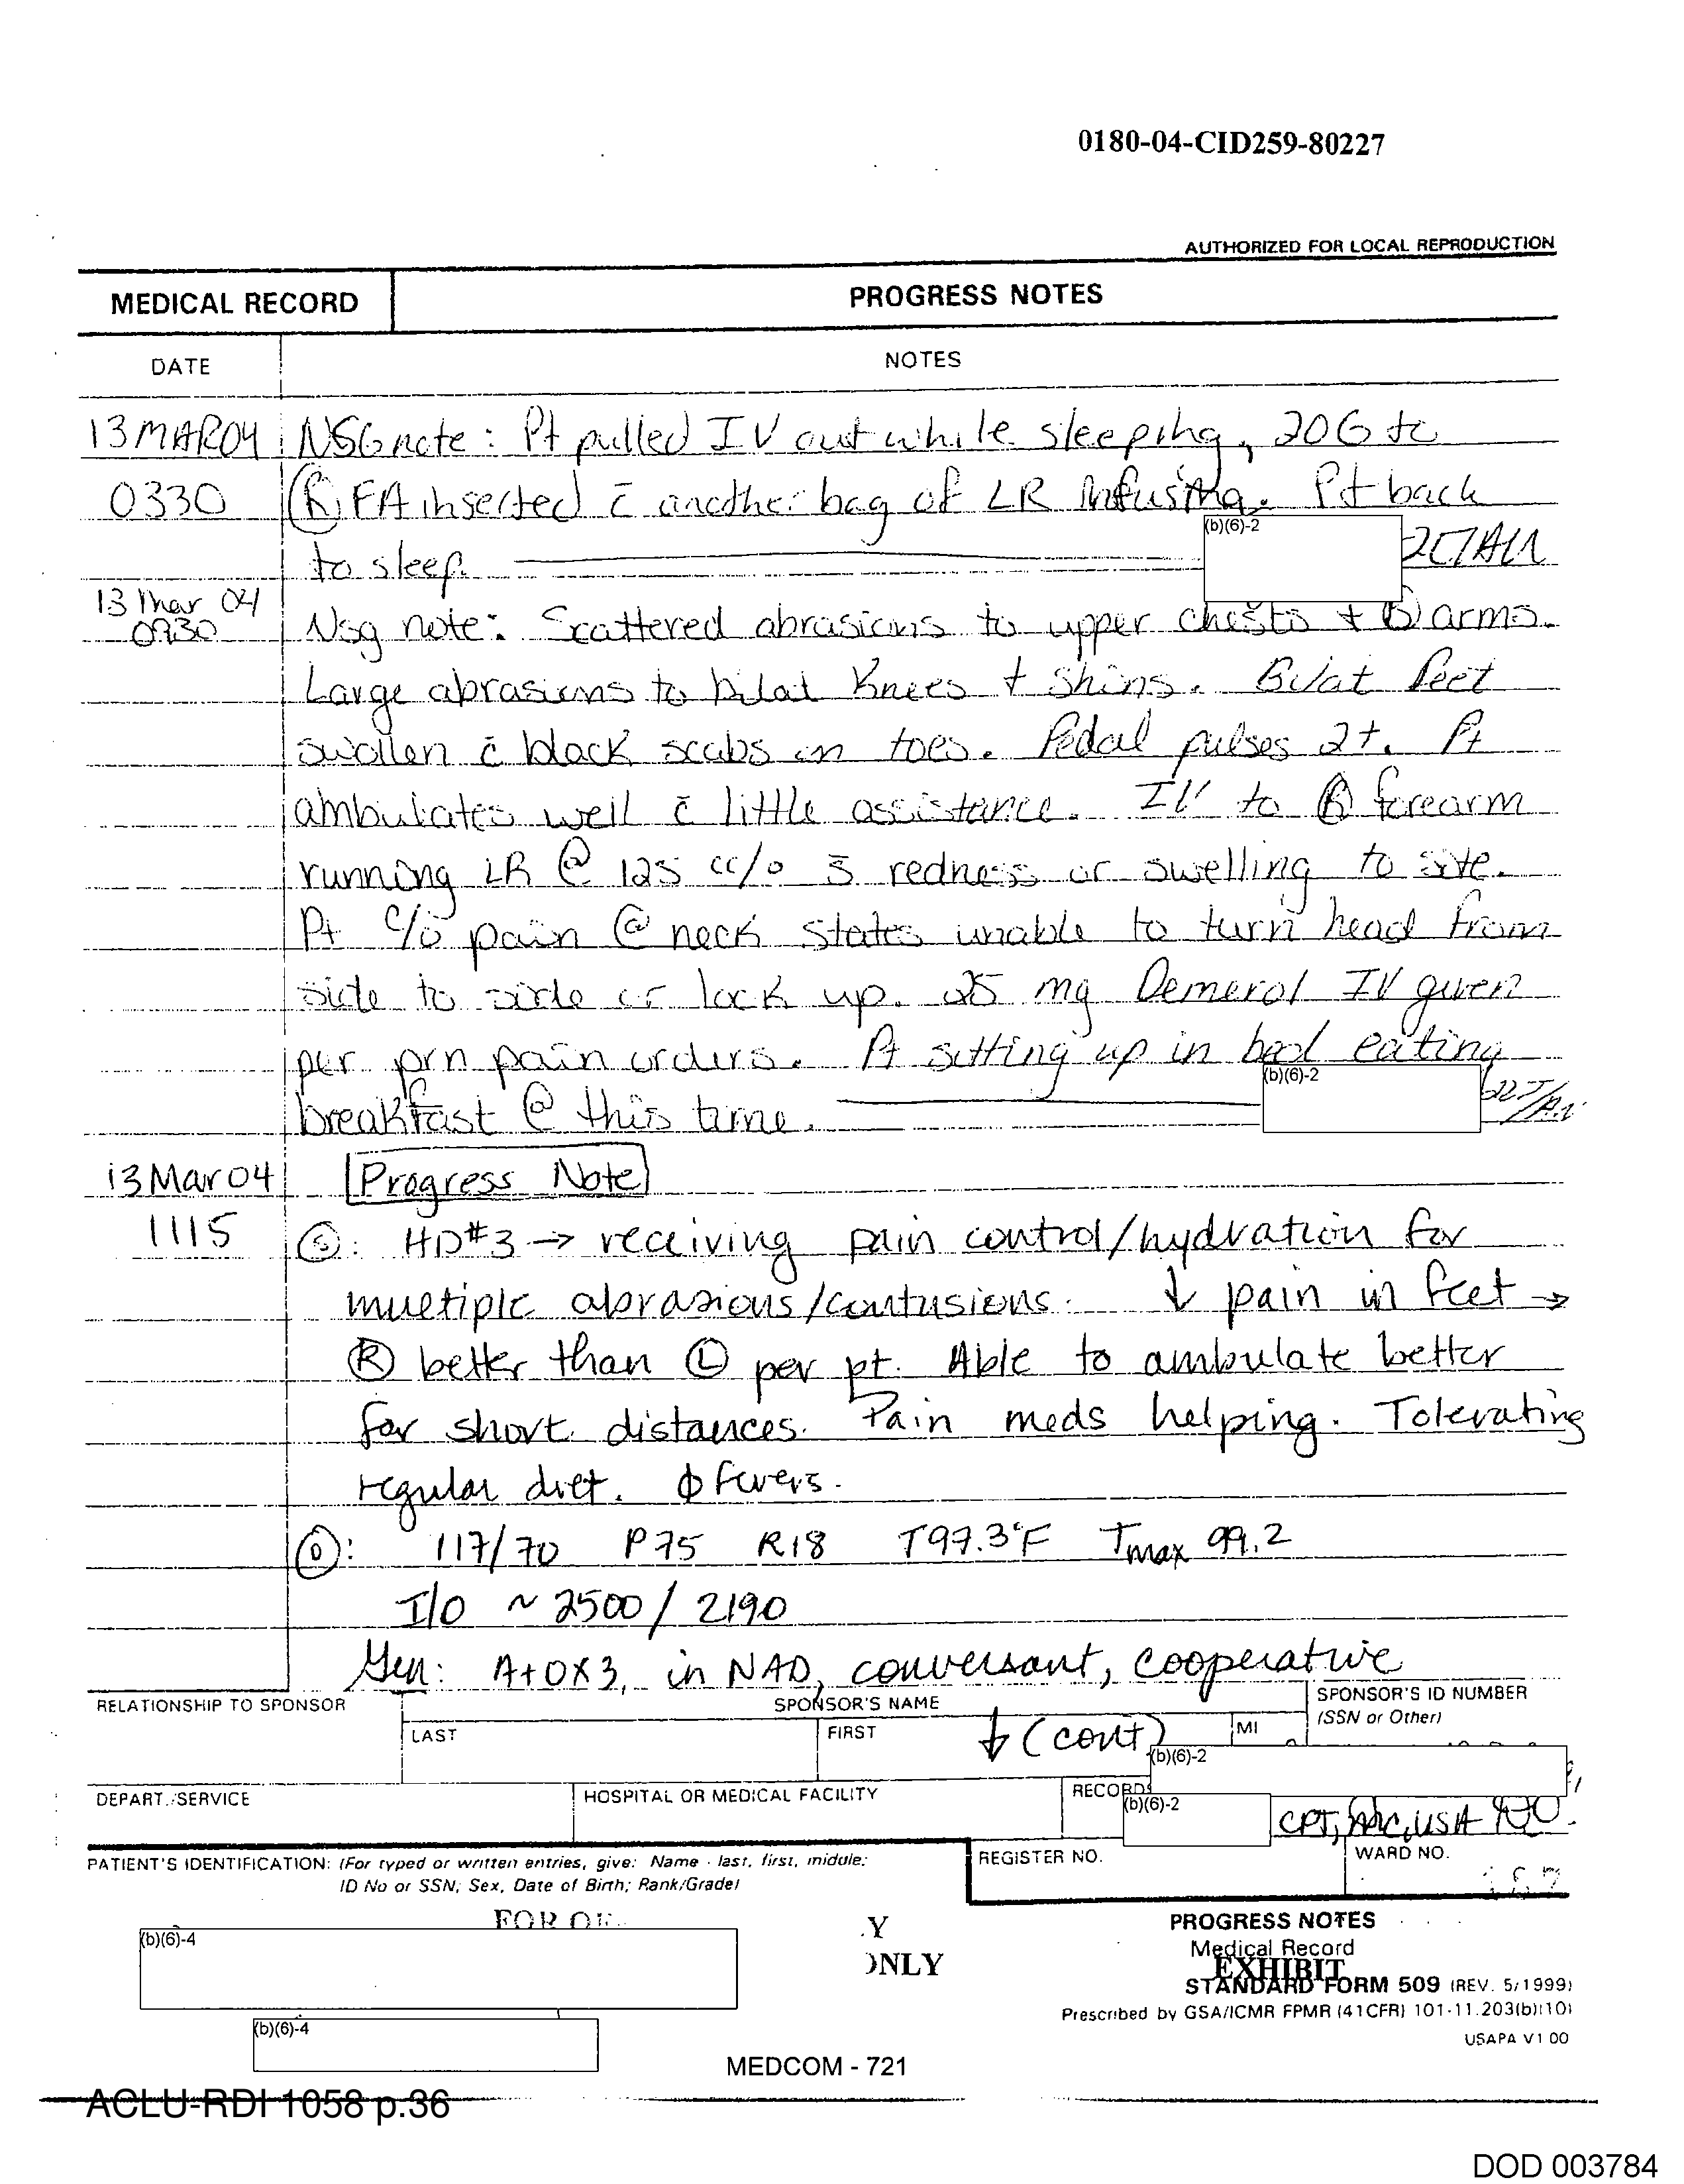 0180-04-CID259-80227
AUTHORIZED FOR LOCAL REPRODUCTION
MEDICAL RECORD
PROGRESS NOTES
DATE
NOTES
13MAR04 NSG note: Pt pulled IV out while sleeping, 20G to
0330 Ⓡ FA inserted c̄ another bag of LR infusing. Pt back
to sleep
(b)(6)-2
13 Mar 04
0930
Nsg note: Scattered abrasions to upper chests + Ⓑ arms.
Large abrasions to bilat knees + shins. Bilat feet
swollen c̄ black scabs on toes. Pedal pulses 2+. Pt
ambulates well c̄ little assistance. IV to Ⓡ forearm
running LR @ 125 cc/o s̄ redness or swelling to site.
Pt c/o pain @ neck states unable to turn head from
side to side or look up. 25 mg Demerol IV given
per prn pain orders. Pt sitting up in bed eating
(b)(6)-2
breakfast @ this time.
13 Mar 04 Progress Note
1115 Ⓢ: HD#3 → receiving pain control/hydration for
multiple abrasions/contusions. ↓ pain in feet →
Ⓡ better than Ⓛ per pt. Able to ambulate better
for short distances. Pain meds helping. Tolerating
regular diet. ϕ fevers.
Ⓞ: 117/70 P75 R18 T97.3°F Tmax 99.2
I/O ~ 2500/2190
Gen: A+OX3, in NAD, conversant, cooperative
RELATIONSHIP TO SPONSOR
SPONSOR'S NAME
SPONSOR'S ID NUMBER
(SSN or Other)
LAST
FIRST
↓ (cont)
MI
(b)(6)-2
DEPART./SERVICE
HOSPITAL OR MEDICAL FACILITY
RECORDS
(b)(6)-2
CPT, USA
PATIENT'S IDENTIFICATION: (For typed or written entries, give: Name - last, first, middle;
ID No or SSN; Sex; Date of Birth; Rank/Grade)
REGISTER NO.
WARD NO.
FOR OF
Y
ONLY
(b)(6)-4
(b)(6)-4
PROGRESS NOTES
Medical Record
EXHIBIT
STANDARD FORM 509 (REV. 5/1999)
Prescribed by GSA/ICMR FPMR (41CFR) 101-11.203(b)(10)
USAPA V1 00
MEDCOM - 721
ACLU-RDI 1058 p.36
DOD 003784